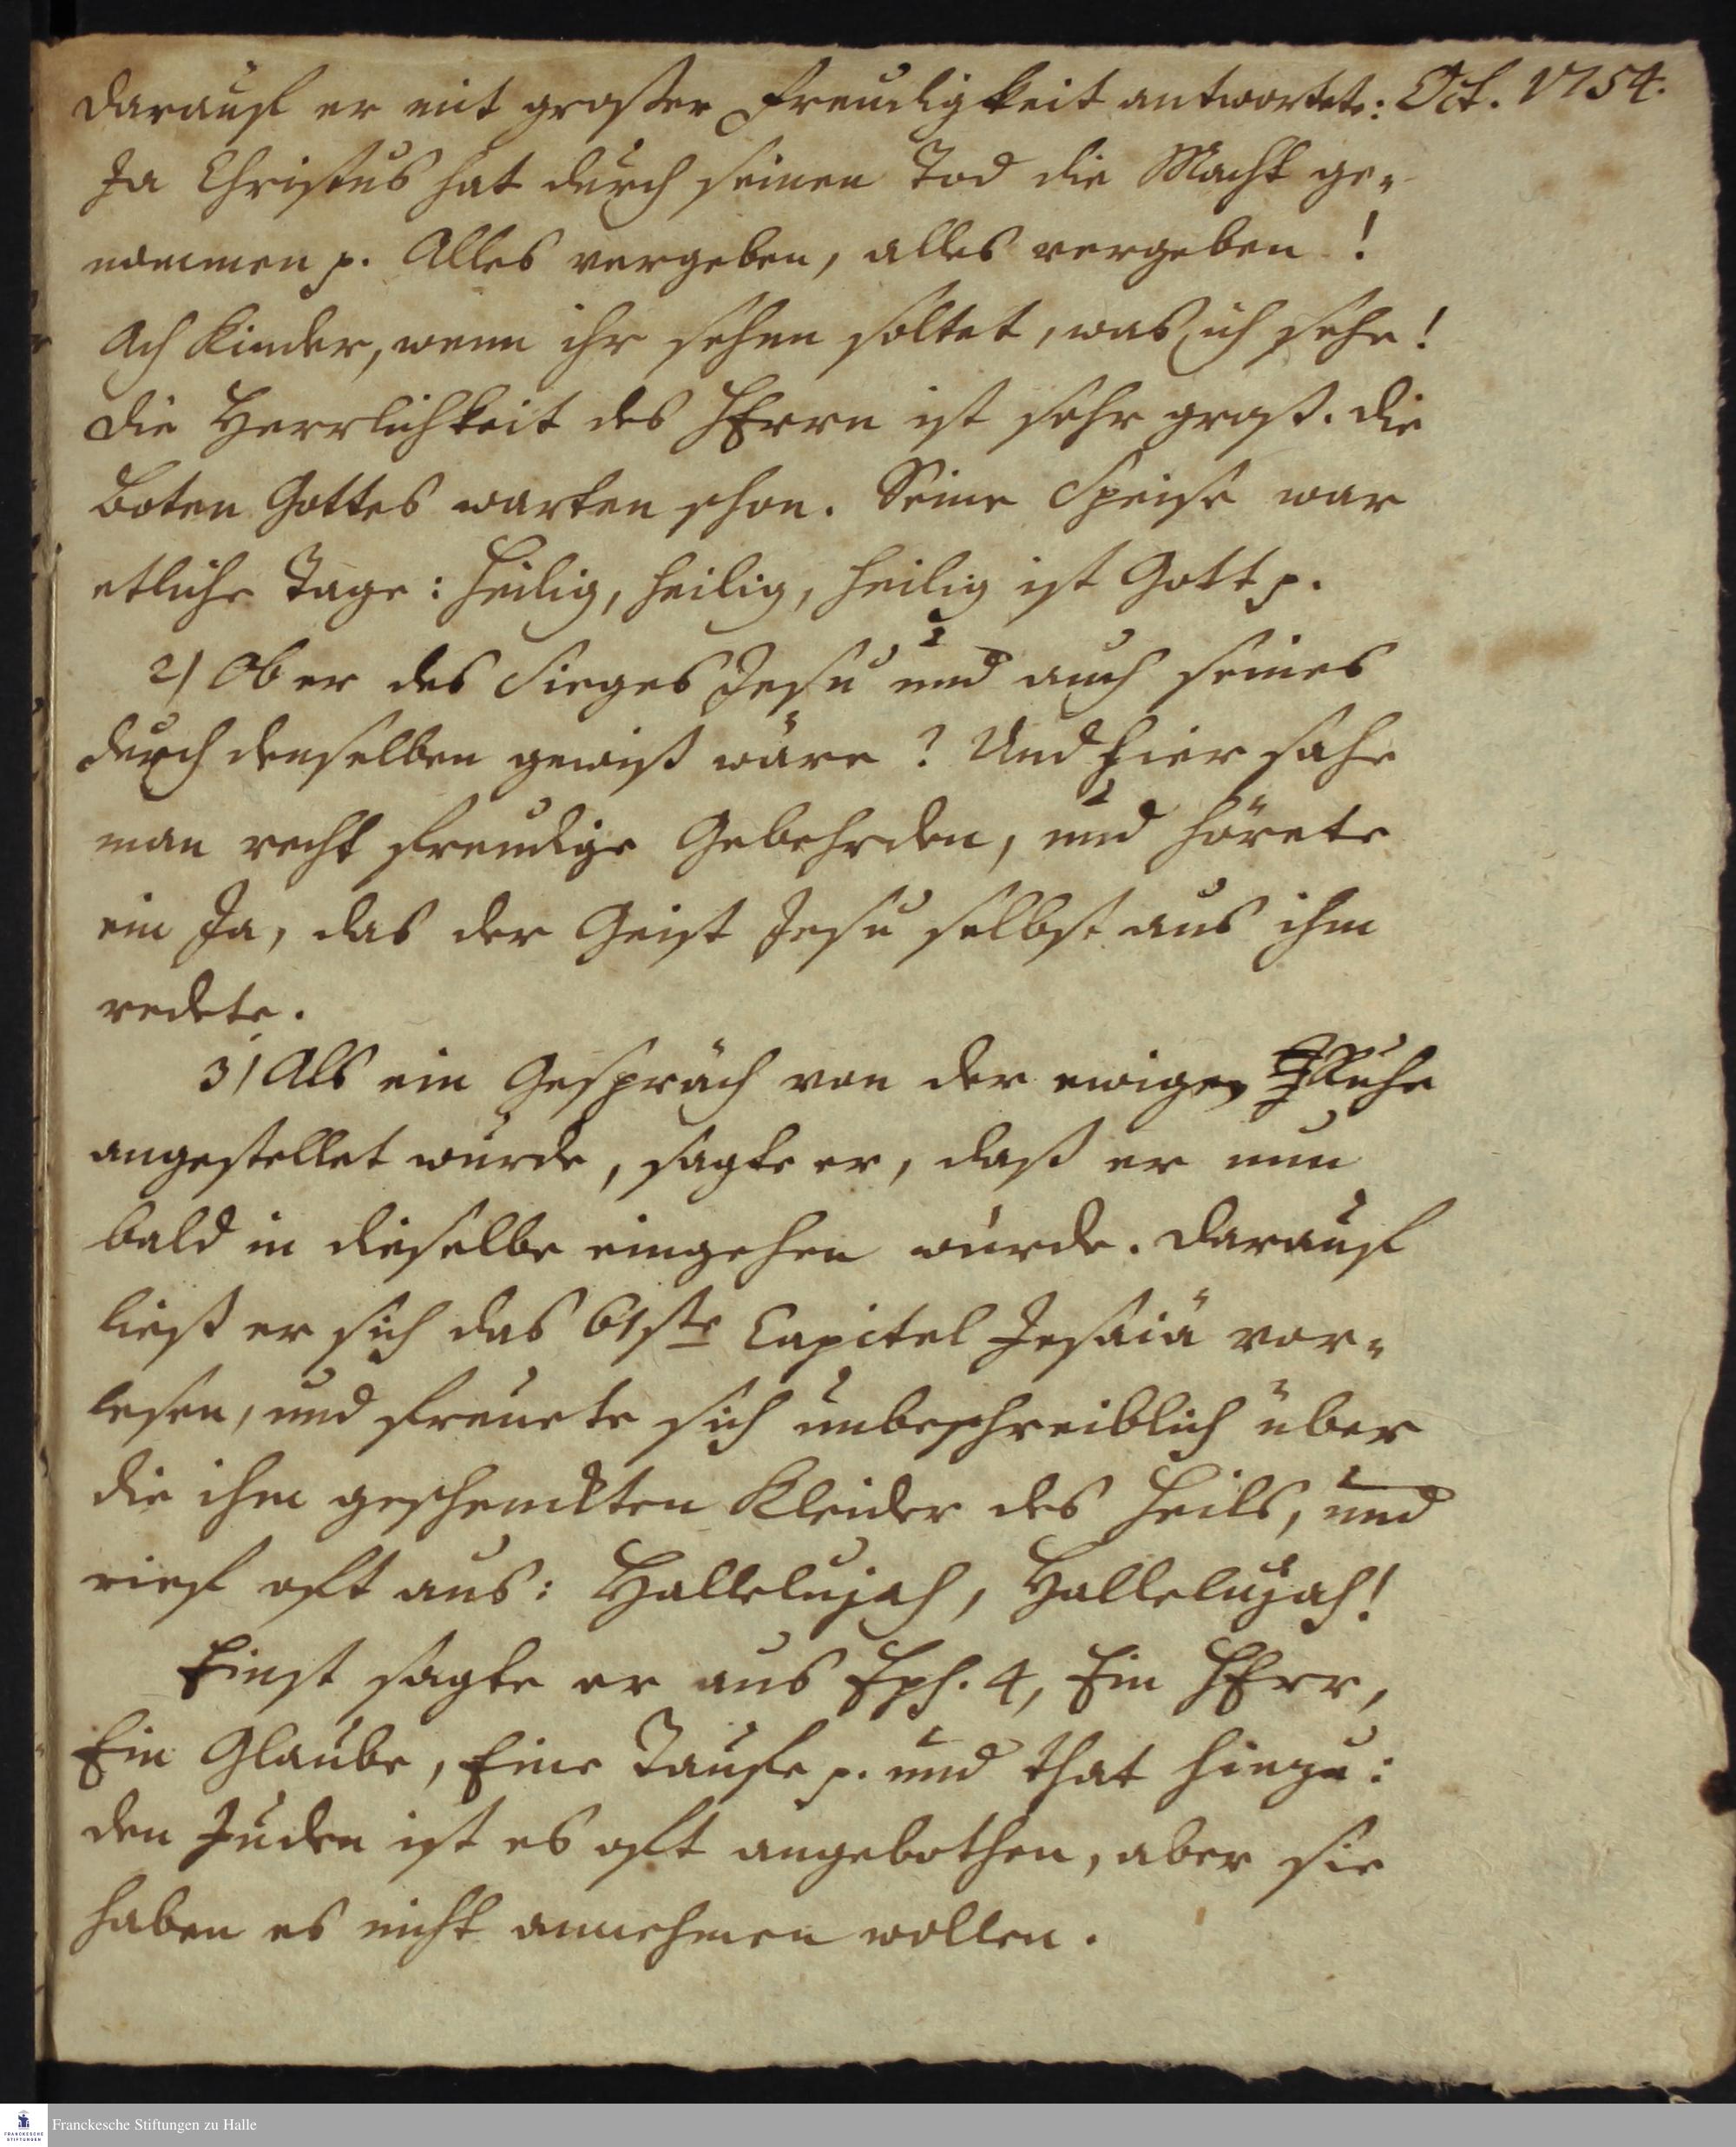 darauf er mit großer Freudigkeit antwortete: Oct. 1754.
Ja Christus hat durch seinen Tod die Macht ge-
nommen p. Alles vergeben, alles vergeben!
Ach Kinder, wenn ihr sehen soltet, was ich sehe!
die Herrlichkeit des HErrn ist sehr groß. die
Boten Gottes warten schon. Seine Speise war
etliche Tage: Heilig, heilig, heilig ist Gott p.
2) Ob er des Sieges Jesu und auch seines
durch denselben gewiß wäre? Und hier sahe
man recht freudige Gebehrden, und hörete
ein Ja, das der Geist Jesu selbst aus ihm
redete.
3) Als ein Gespräch von der ewigen Ruhe
angestellet wurde, sagte er, daß er nun
bald in dieselbe eingehen würde. Darauf
ließ er sich das 61ste Capitel Jesaiä vor-
lesen, und freuete sich unbeschreiblich über
die ihm geschenckten Kleider des Heils, und
rief oft aus: Hallelujah, Hallelujah!
Einst sagte er aus Eph. 4, Ein HErr,
Ein Glaube, Eine Taufe p. und that hinzu:
den Juden ist es oft angebothen, aber sie
haben es nicht annehmen wollen.
FRANCKESCHE
STIFTUNGEN
Franckesche Stiftungen zu Halle